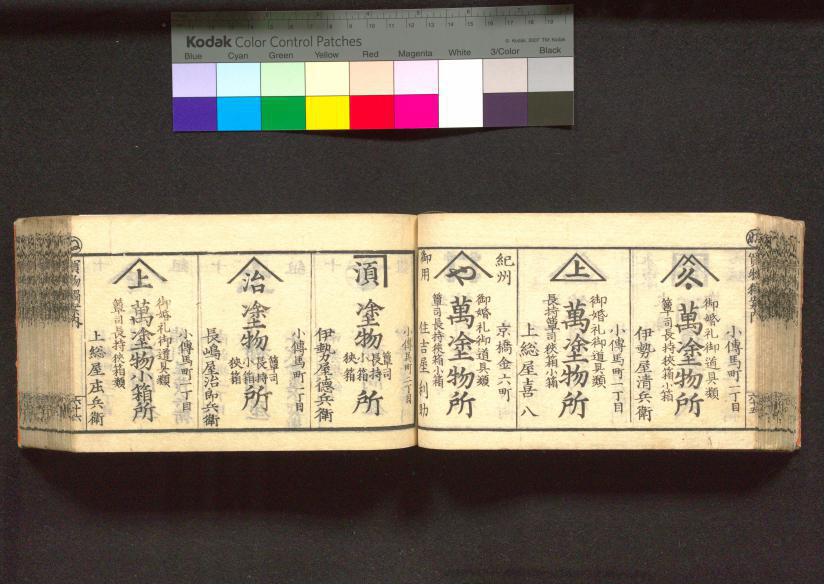 Kodak Color Control Patches
© Kodak, 2007 TM: Kodak
Blue Cyan Green Yellow Red Magenta White 3/Color Black
小傳馬町一丁目
御婚礼御道具類
萬塗物所
簞司長持狹箱小箱
伊勢屋清兵衛
小傳馬町一丁目
御婚礼御道具類
上
萬塗物所
長持簞司狹箱小箱
上総屋喜八
紀州
京橋金六町
御婚礼御道具類
や
萬塗物所
簞司長持狹箱小箱
御用
住吉屋利助
小傳馬町二丁目
須
塗物所
簞司
長持
小箱
狹箱
伊勢屋德兵衛
小傳馬町二丁目
治
塗物所
簞司
長持
小箱
狹箱
長嶋屋治郎兵衛
小傳馬町二丁目
御婚礼御道具類
上
萬塗物小箱所
簞司長持狹箱類
上総屋庄兵衛
六十六